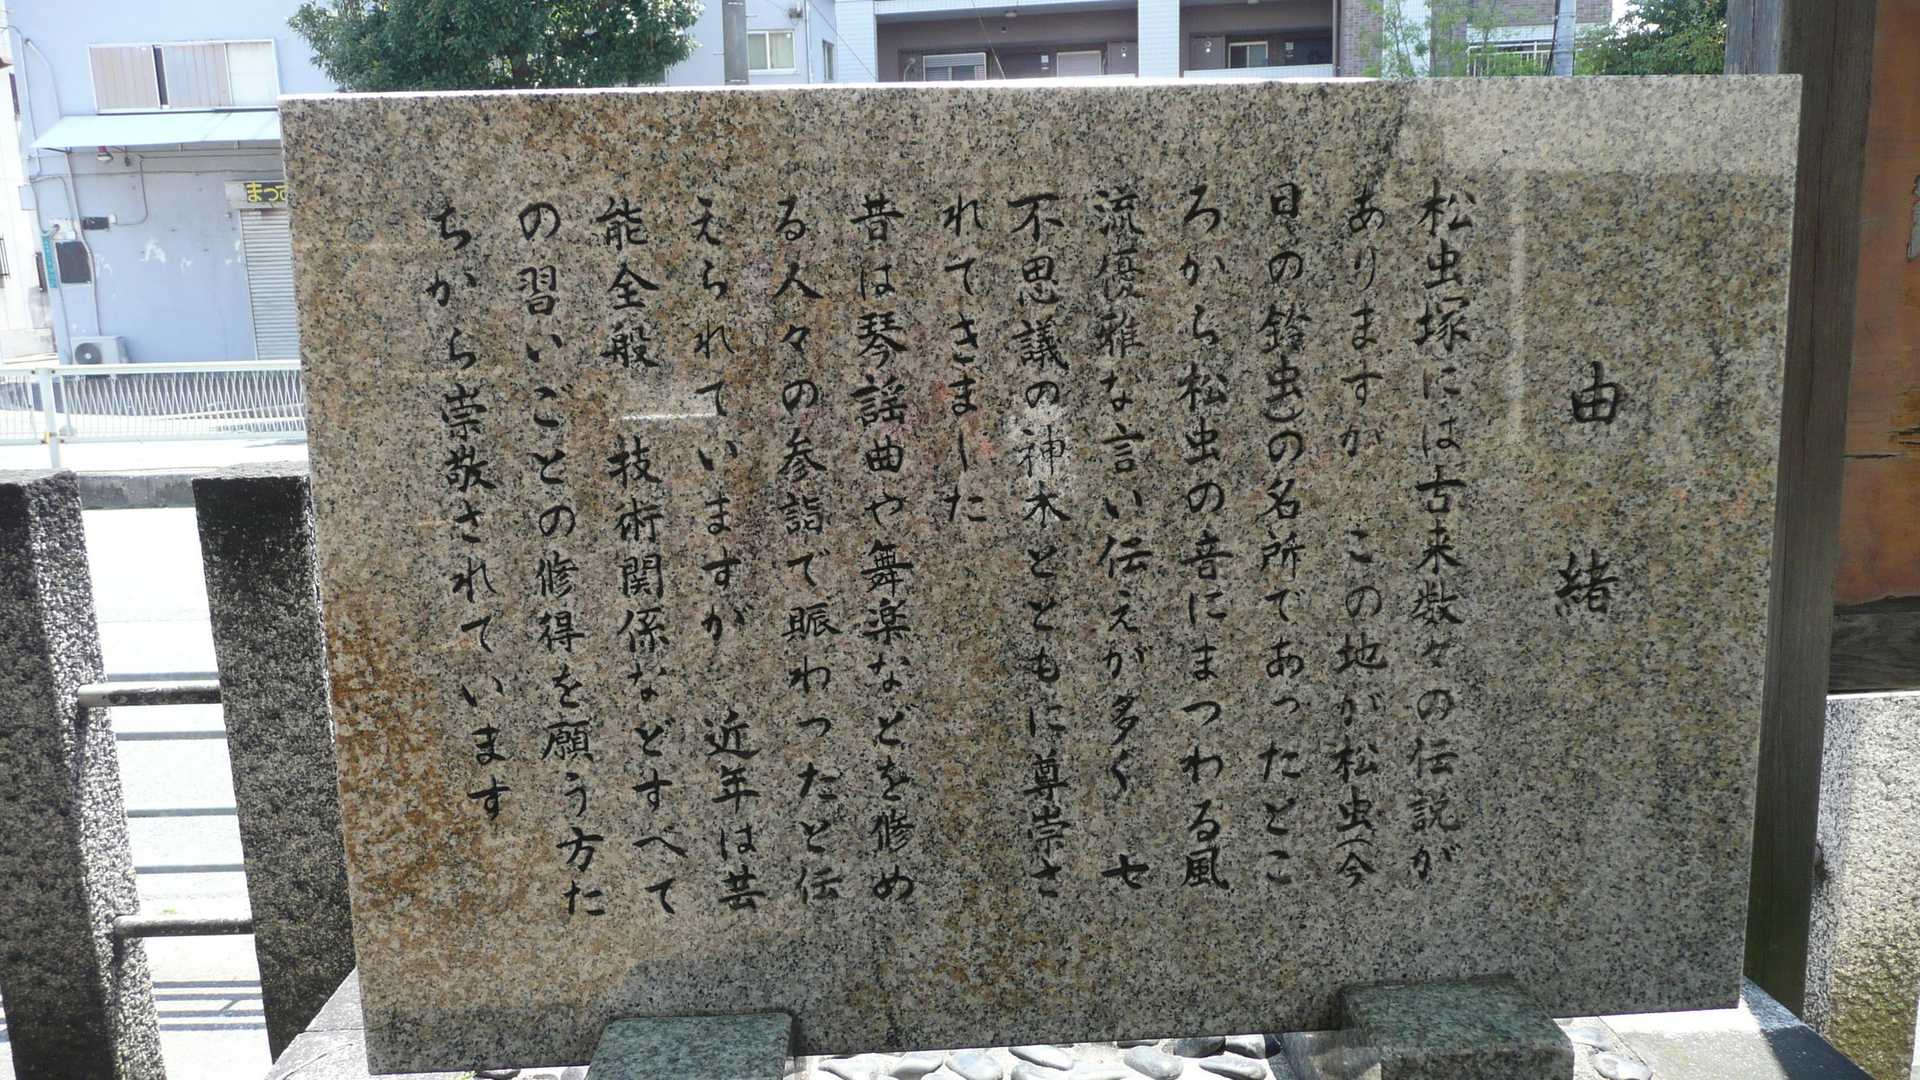 由緒
松虫塚には古来数々の伝説が
ありますが この地が松虫(今
日の鈴虫)の名所であったとこ
ろから松虫の音にまつわる風
流優雅な言い伝えが多く 七
不思議の神木とともに尊崇さ
れてきました
昔は琴謡曲や舞楽などを修め
る人々の参詣で賑わったと伝
えられていますが 近年は芸
能全般 技術関係などすべて
の習いごとの修得を願う方た
ちから崇敬されています